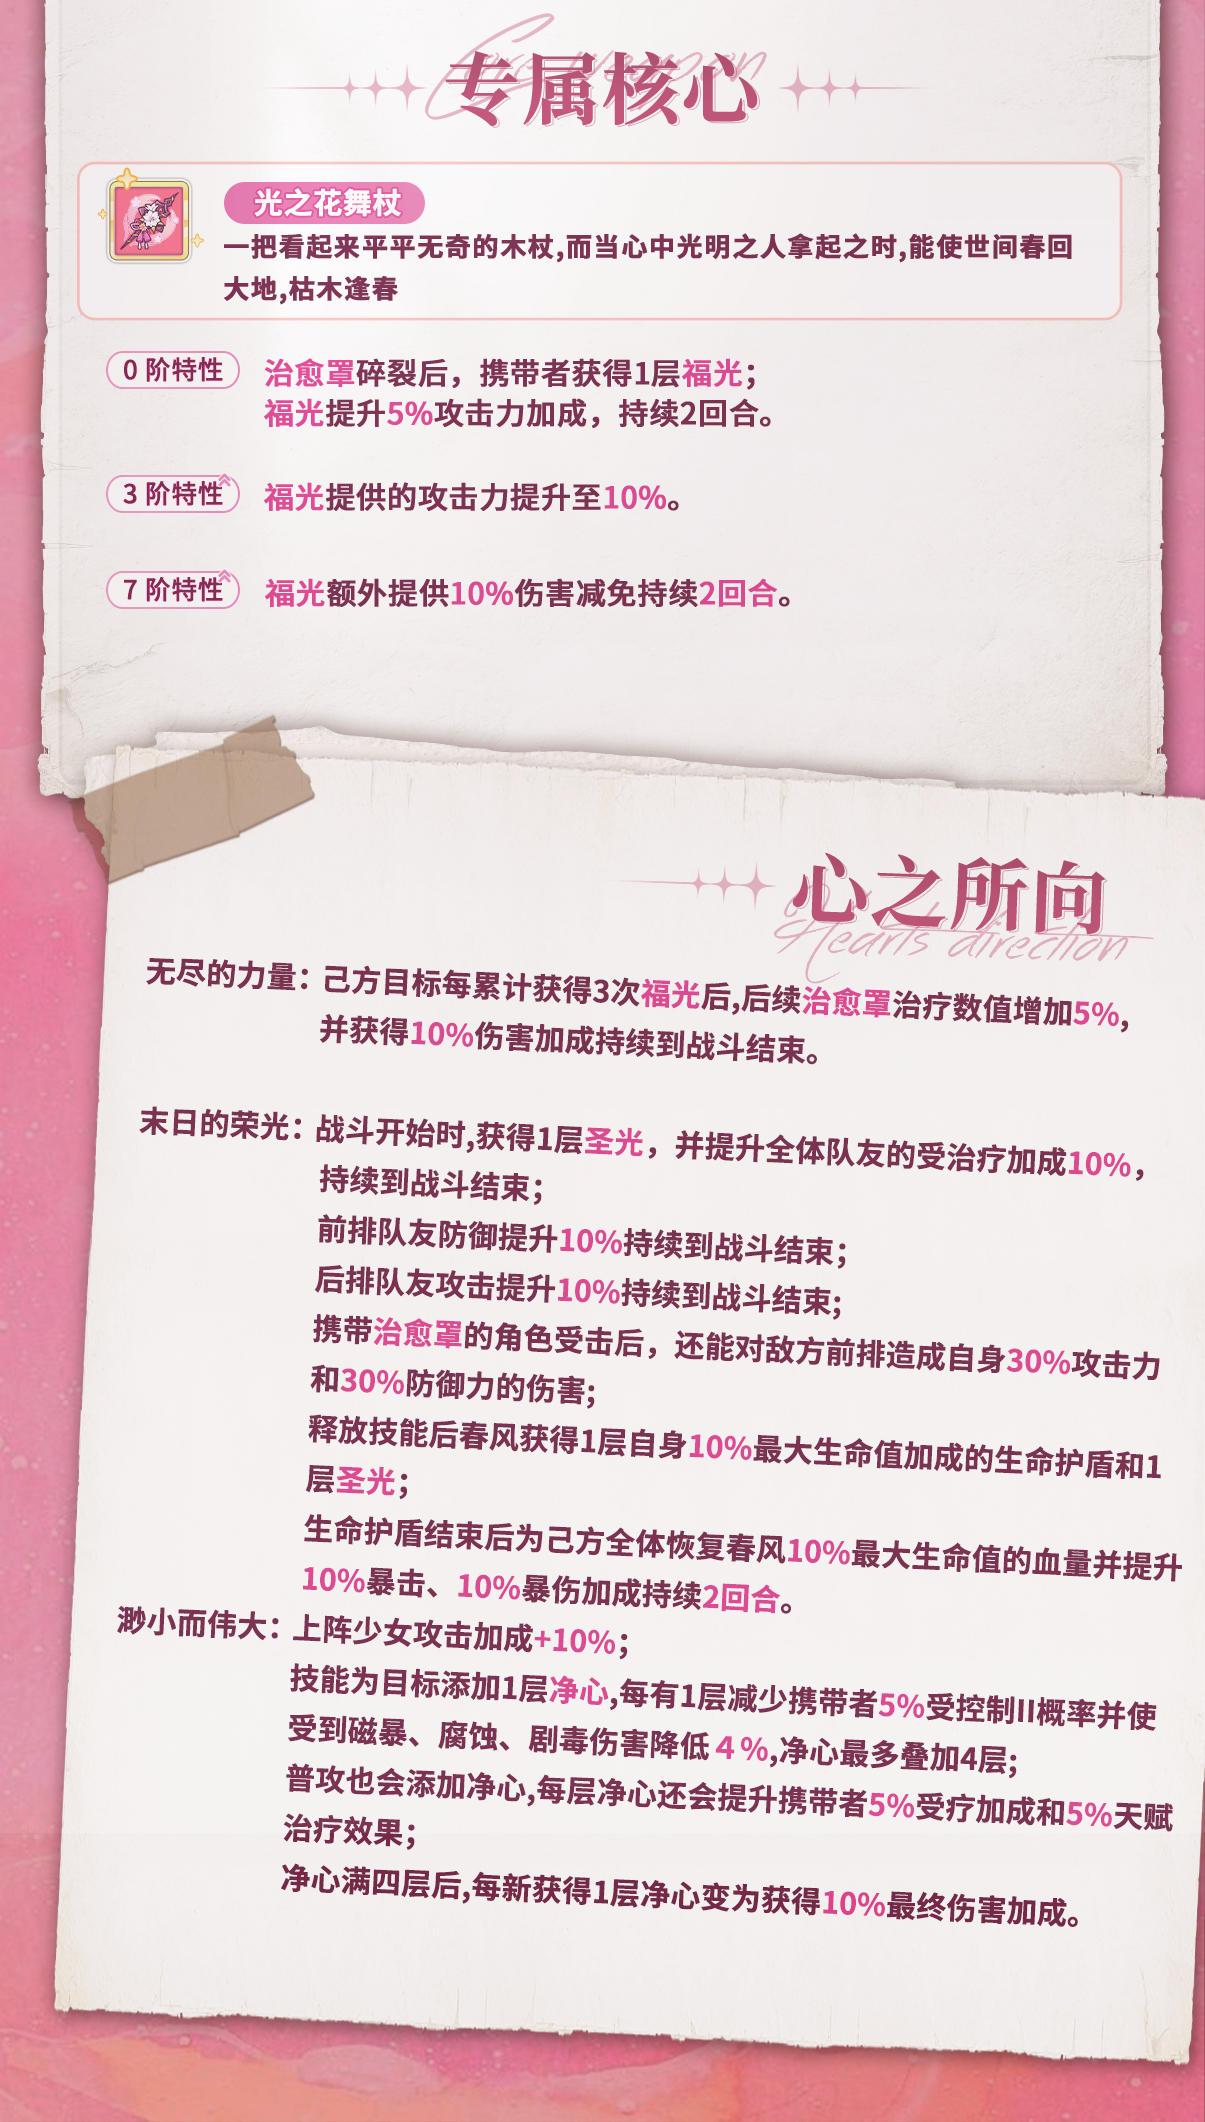 专属核心
光之花舞杖
一把看起来平平无奇的木杖,而当心中光明之人拿起之时,能使世间春回
大地,枯木逢春
0 阶特性
治愈罩碎裂后，携带者获得1层福光；
福光提升5%攻击力加成，持续2回合。
3 阶特性
福光提供的攻击力提升至10%。
7 阶特性
福光额外提供10%伤害减免持续2回合。
心之所向
Hearts direction
无尽的力量：己方目标每累计获得3次福光后,后续治愈罩治疗数值增加5%,
并获得10%伤害加成持续到战斗结束。
末日的荣光：战斗开始时,获得1层圣光，并提升全体队友的受治疗加成10%，
持续到战斗结束；
前排队友防御提升10%持续到战斗结束；
后排队友攻击提升10%持续到战斗结束;
携带治愈罩的角色受击后，还能对敌方前排造成自身30%攻击力
和30%防御力的伤害;
释放技能后春风获得1层自身10%最大生命值加成的生命护盾和1
层圣光；
生命护盾结束后为己方全体恢复春风10%最大生命值的血量并提升
10%暴击、10%暴伤加成持续2回合。
渺小而伟大：上阵少女攻击加成+10%；
技能为目标添加1层净心,每有1层减少携带者5%受控制II概率并使
受到磁暴、腐蚀、剧毒伤害降低４%,净心最多叠加4层;
普攻也会添加净心,每层净心还会提升携带者5%受疗加成和5%天赋
治疗效果；
净心满四层后,每新获得1层净心变为获得10%最终伤害加成。